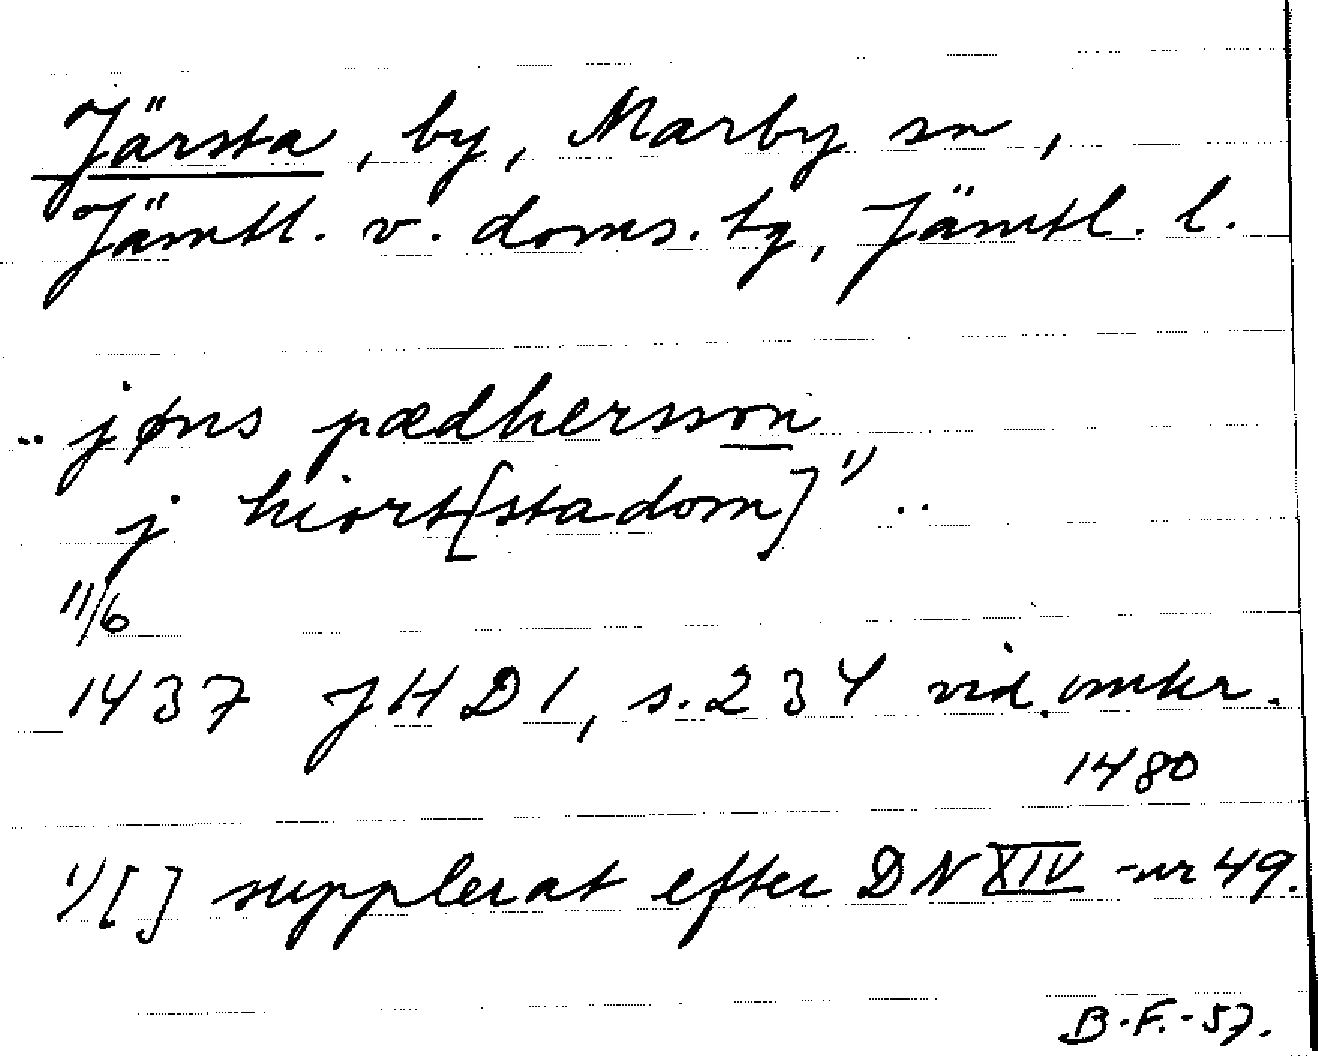 Järsta, by, Marby sn,
Jämtl. v. doms. tg, Jämtl. l.
.. jøns pædhersson
j hiort[stadom]¹⁾ ..
11/6
1437 JHD 1, s. 234 vid. omkr.
1480
¹⁾ [ ] supplerat efter DN XIV nr 49.
B.F.-57.